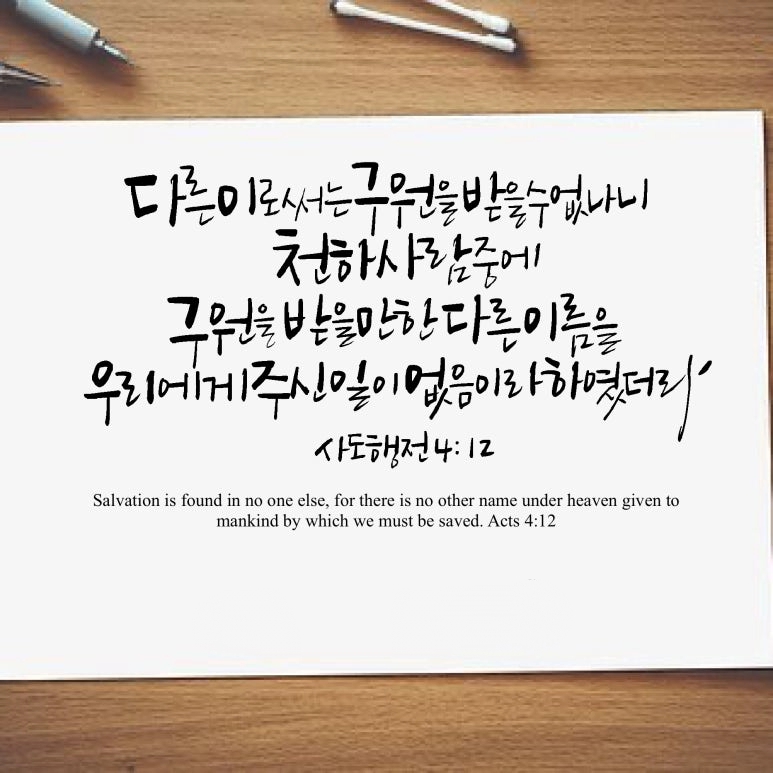 다른이로써는구원을받을수없나니
천하사람중에
구원을받을만한다른이름을
우리에게주신일이없음이라하였더라
사도행전4:12
Salvation is found in no one else, for there is no other name under heaven given to
mankind by which we must be saved. Acts 4:12